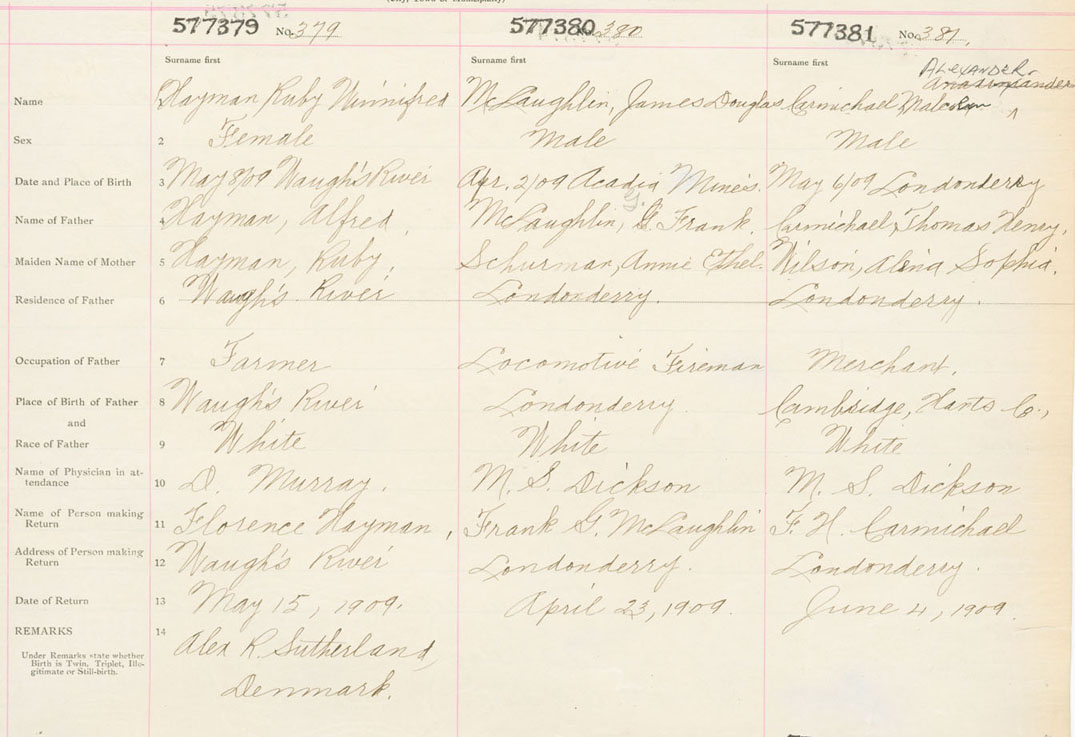 577379 No. 379 577380 No. 380 577381 No. 381.
Surname first Surname first Surname first
ALEXANDER
Name Hayman Ruby Winnifred McLaughlin, James Douglas Carmichael Malcolm
Sex 2 Female Male Male
Date and Place of Birth 3 May 8/09 Waugh's River Apr. 2/09 Acadia Mines. May 6/09 Londonderry
Name of Father 4 Hayman, Alfred, McLaughlin, G. Frank. Carmichael, Thomas Henry,
Maiden Name of Mother 5 Hayman, Ruby, Schurman, Annie Ethel. Wilson, Sophia.
Residence of Father 6 Waugh's River Londonderry. Londonderry.
Occupation of Father 7 Farmer Locomotive Fireman Merchant.
Place of Birth of Father 8 Waugh's River Londonderry. Cambridge, Hants Co.,
and
Race of Father 9 White White White
Name of Physician in at-
tendance 10 D. Murray. M. S. Dickson M. S. Dickson
Name of Person making
Return 11 Florence Hayman, Frank G. McLaughlin F. H. Carmichael
Address of Person making
Return 12 Waugh's River Londonderry. Londonderry.
Date of Return 13 May 15, 1909. April 23, 1909. June 4, 1909.
REMARKS 14
Alex R. Sutherland,
Under Remarks state whether
Birth is Twin, Triplet, Ille-
gitimate or Still-birth.
Denmark.